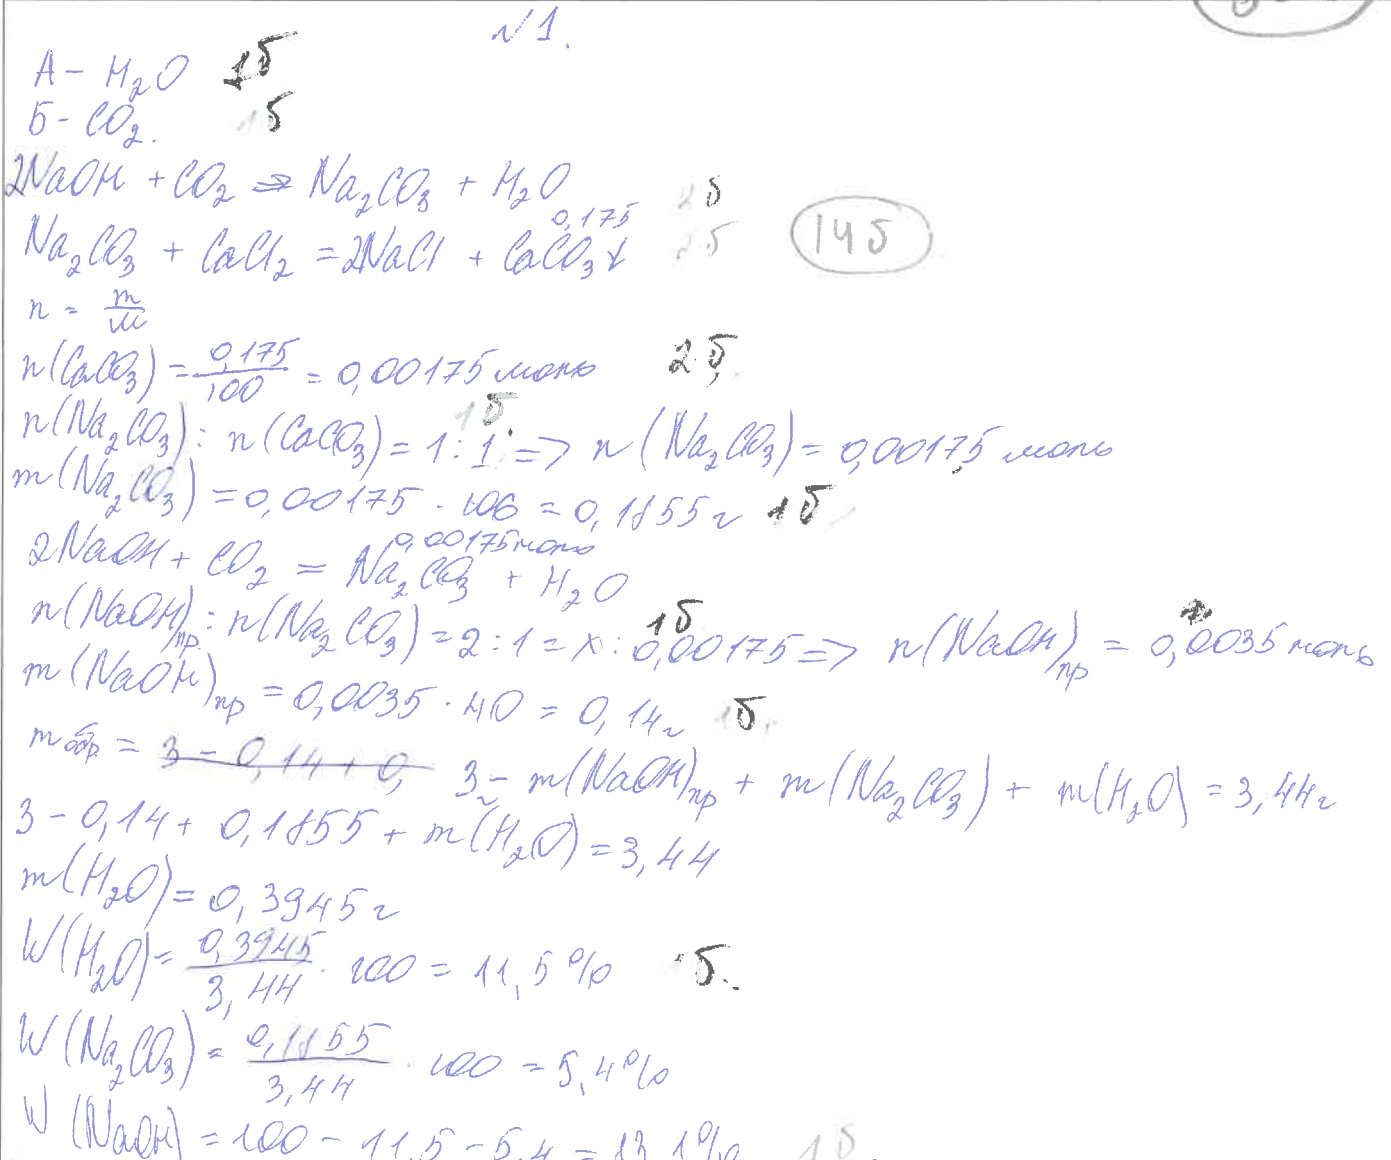 №1.
А – H2O 1б
Б – CO2. 1б
2NaOH + CO2 => Na2CO3 + H2O 2б
0,175
Na2CO3 + CaCl2 = 2NaCl + CaCO3↓ 2б 14б
n = m/M
n(CaCO3) = 0,175/100 = 0,00175 моль 2б
1б
n(Na2CO3) : n(CaCO3) = 1 : 1 => n(Na2CO3) = 0,00175 моль
m(Na2CO3) = 0,00175 · 106 = 0,1855 г 1б
0,00175 моль
2NaOH + CO2 = Na2CO3 + H2O
1б
n(NaOH)пр. : n(Na2CO3) = 2 : 1 = x : 0,00175 => n(NaOH)пр = 0,0035 моль
m(NaOH)пр = 0,0035 · 40 = 0,14 г 1б
m обр. = 3 – 0,14 + 0, 3г – m(NaOH)пр + m(Na2CO3) + m(H2O) = 3,44 г
3 – 0,14 + 0,1855 + m(H2O) = 3,44
m(H2O) = 0,3945 г
W(H2O) = 0,3945/3,44 · 100 = 11,5% 1б.
W(Na2CO3) = 0,1855/3,44 · 100 = 5,4%
W(NaOH) = 100 – 11,5 – 5,4 = 1б